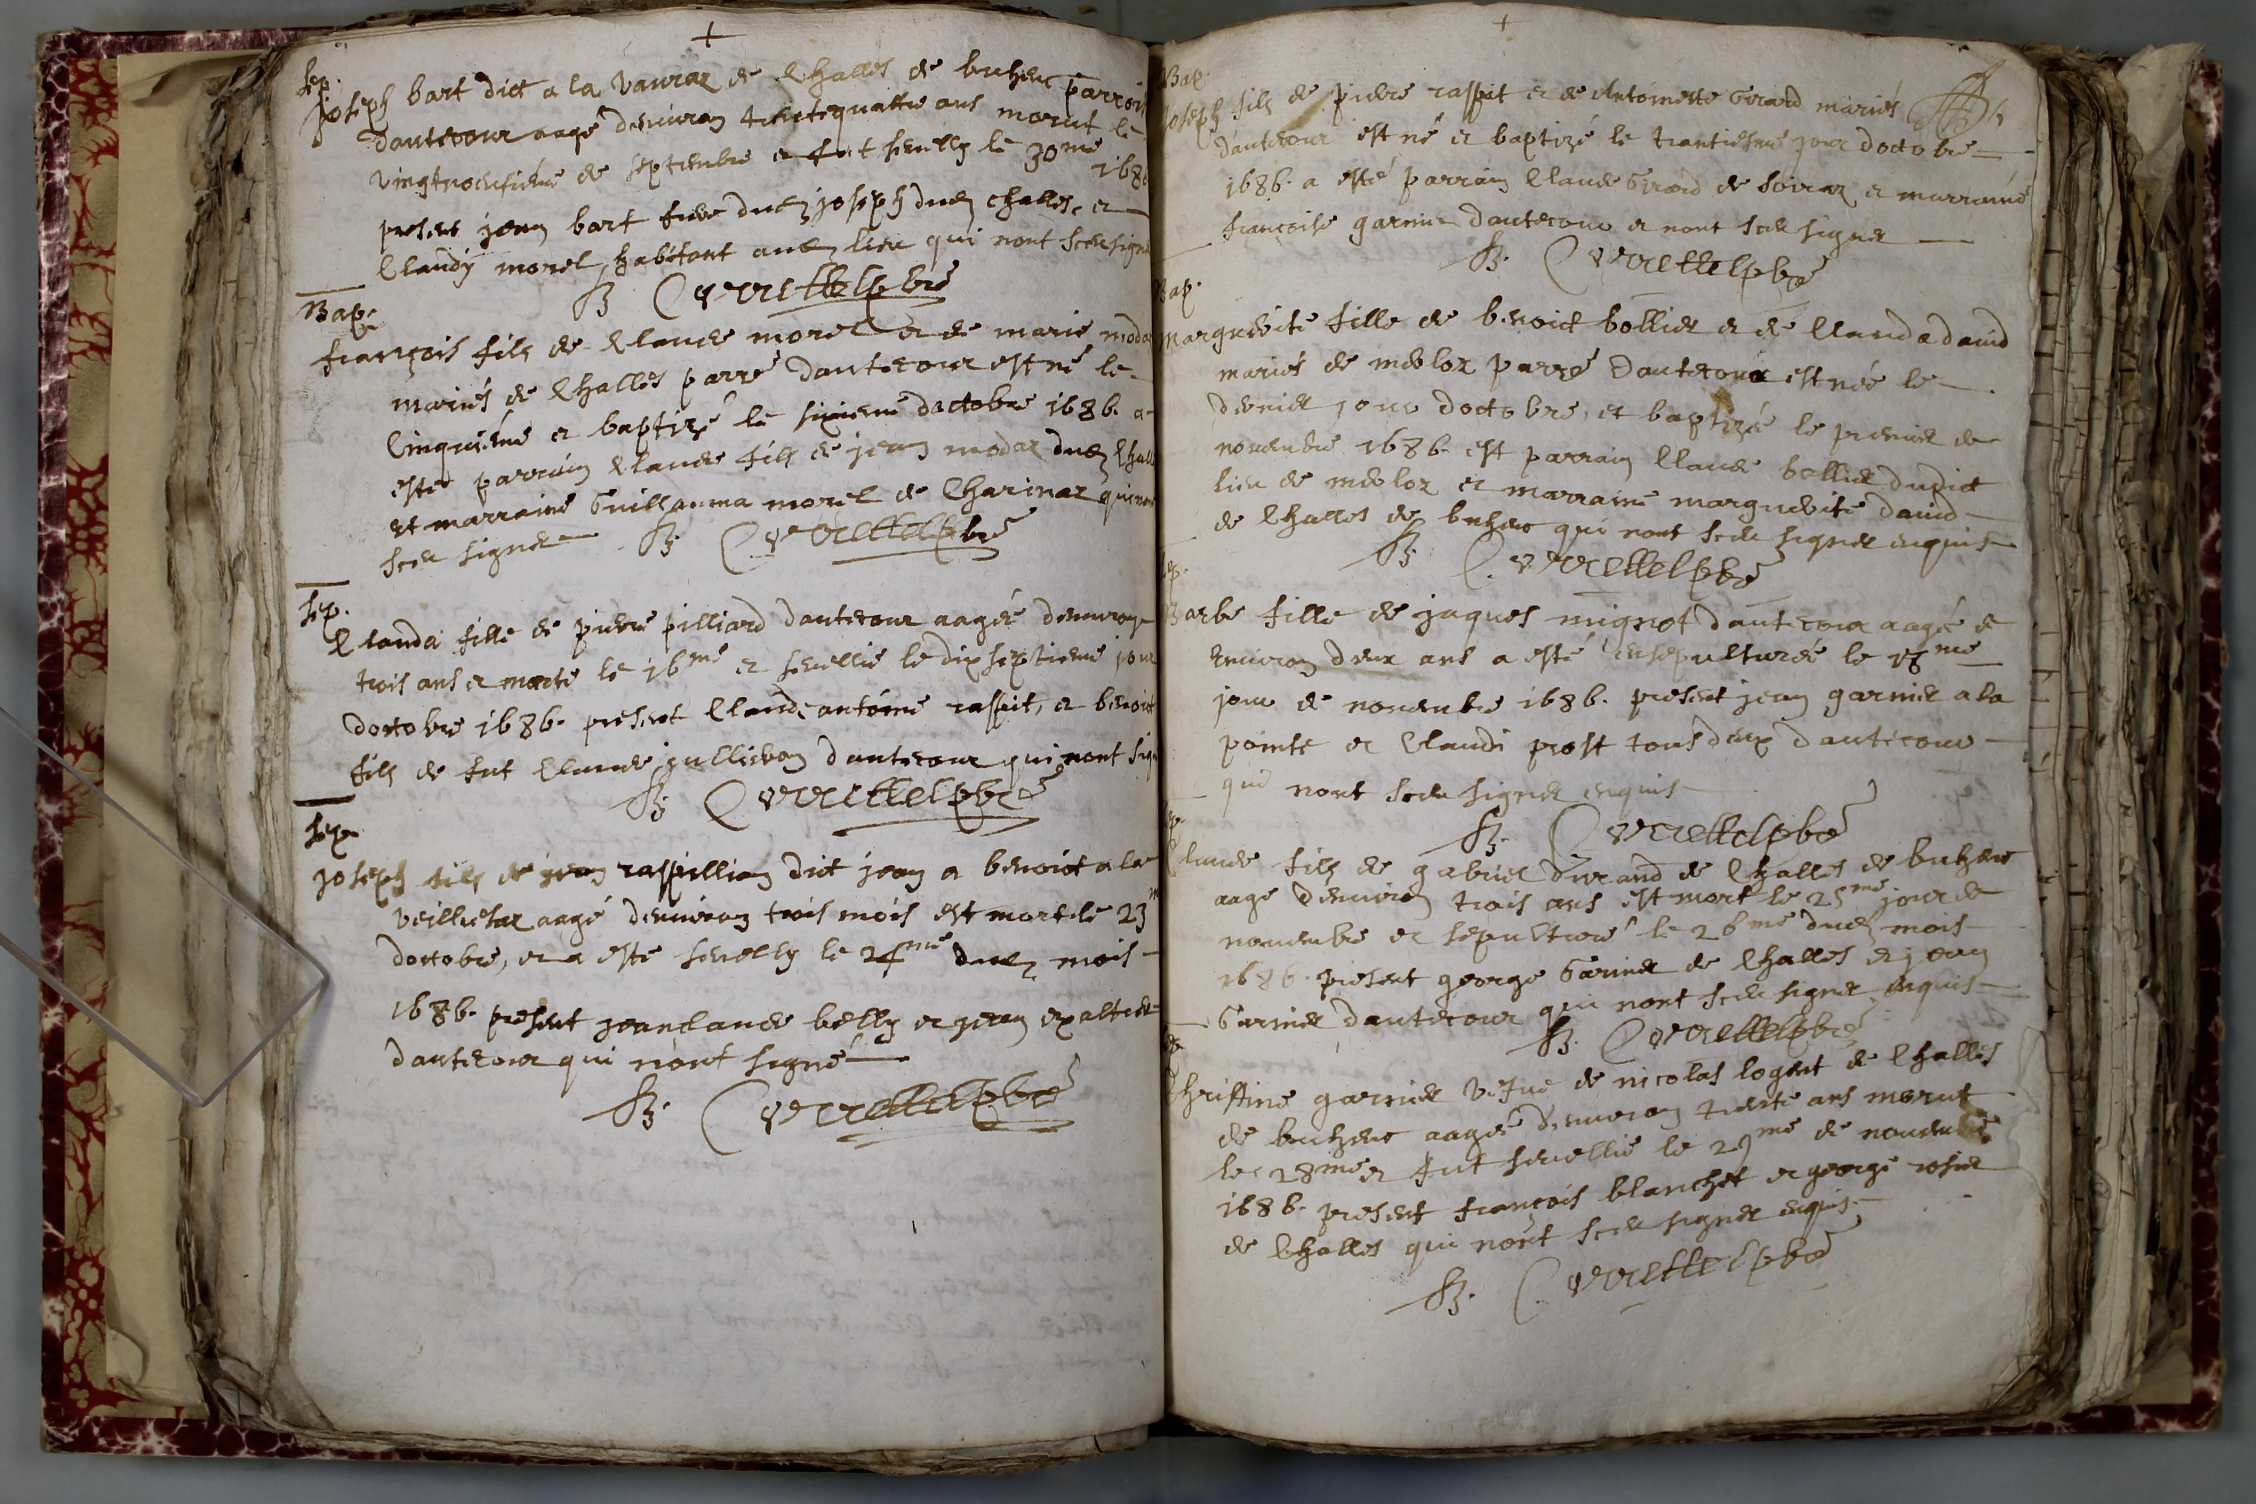 +
Sep.
Joseph bart dict a la vauraz de Challes de buhenc parrois
dautecour aagé denviron trentequattre ans morut le
vingtneufviéme de septembre et fut sevelly le 30me 1686
present jean bart frere dud joseph dud challes, et
Claudy morel habitant aud lieu qui nont sceu signé
B. Cverettelpbré
Bap.
françois fils de Claude morel et de marie modaz
mariés de Challes parr͞e dautecour est né le
Cinquiéme et baptizé le sixiéme doctobre 1686. a
esté parrain Claude fils de jean modaz dud Chall
et marraine Guillauma morel de Charinaz qui nont
sceu signer B. Cverettelpbré
Sep.
Clauda fille de pierre pilliard dautecour aagée denviron
trois ans et morte le 16me et sevellie le dix septieme jour
doctobre 1686. present Claude antoine raspit, et benoit
fils de fut Claude jullieron dautecour qui nont sig
B. Cverettelpbré
Sep.
Joseph fils de jean raspillian dict jean a benoict a la
veilliesaz aagé denviron trois mois est mort le 23me
doctobre, et a esté sevelly le 24me dud mois
1686. present jeanclaude belly et jean exaltier
dautecour qui nont signé
B. Cverettelpbré
+
Bap.
Joseph fils de pierre raspit et de Antoinette Girard mariés
dautecour est né et baptizé le trantiesme jour doctobre
1686. a esté parrain Claude Girard de Soiraz et marraine
françoise garnier dautecour et nont sceu signer
B. Cverettelpbré
Bap.
Marguerite fille de benoict bollier et de Clauda david
mariés de merloz parr͞e dautecour est née le
dernier jour doctobre, et baptizée le premier de
novembre 1686. est parrain Claude bollier dudict
lieu de merloz et marraine marguerite david
de Challes de buhenc qui nont sceu signer enquis
B. Cverettelpbré
Sep.
Barbe fille de jaques mignot dautecour aagée de
environ deux ans a esté ensepulturée le me
jour de novembre 1686. present jean garnier a la
pointe et Claudi prost tous deux dautecour
qui nont sceu signer enquis
B. Cverettelpbré
Sep.
Claude fils de gabriel Durand de Challes de buhenc
aagé denviron trois ans est mort le 25me jour de
novembre et sepulturé le 26me dud mois
1686. present george Garnier de Challes et jean
Garnier dautecour qui nont sceu signer enquis
B. Cverettelpbré
Sep.
Christine garnier vefue de nicolas logent de Challes
de buhenc aagée denviron trente ans morut
le 28me et fut sevellie le 29me de novembre
1686. present françois blanchet et george rosier
de Challes qui nont sceu signer enquis
B. Cverettelpbré